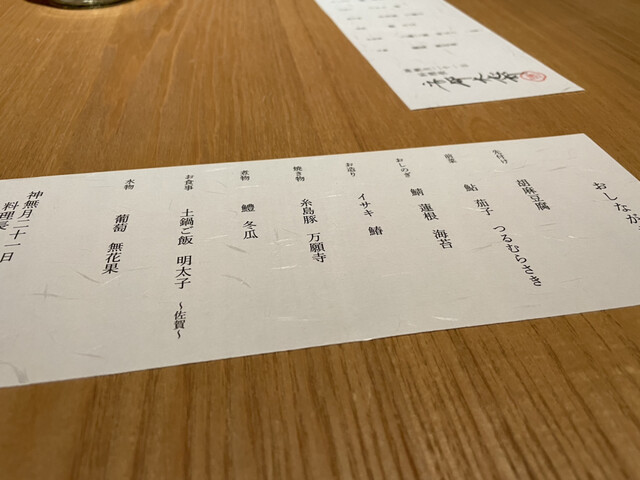 おしなが
先付け
胡麻豆腐
前菜
鮎 茄子 つるむらさき
おしのぎ
鯖 蓮根 海苔
お造り
イサキ 鰆
焼き物
糸島豚 万願寺
煮物
鱧 冬瓜
お食事
土鍋ご飯 明太子 ～佐賀～
水物
葡萄 無花果
神無月二十一日
料理長